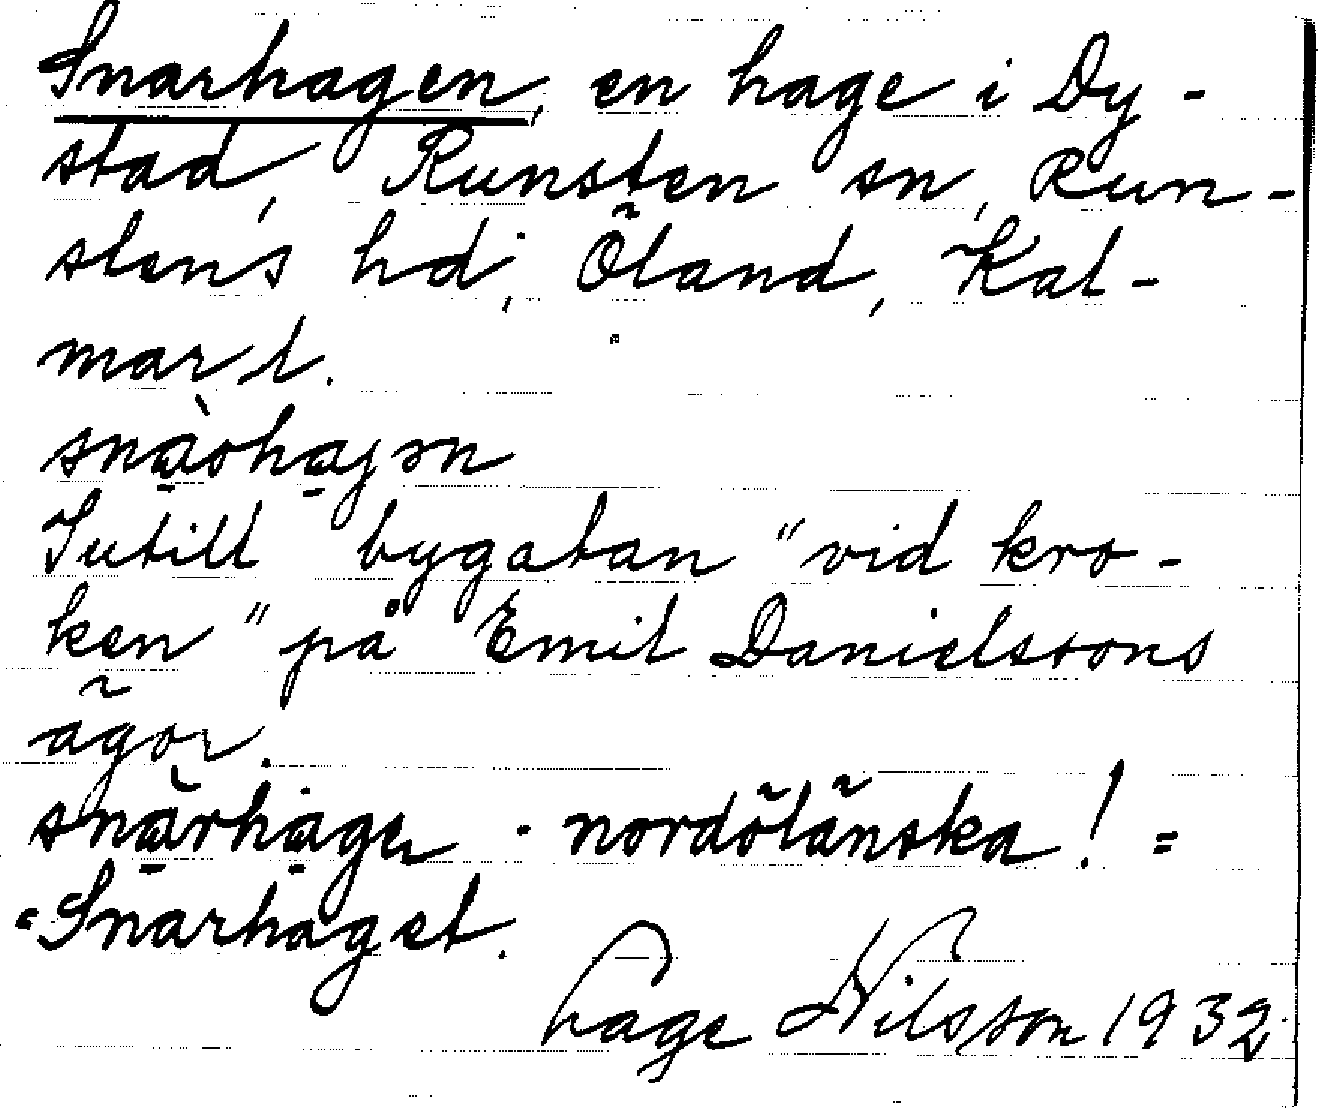 Snarhagen, en hage i Dy-
stad, Runsten sn, Run-
stens hd, Öland, Kal-
mar l.
snàrhagən
Intill bygatan "vid kro-
ken" på Emil Danielssons
ägor.
snàrhagen - nordölänska! =
= Snarhaget.
Lage Nilsson 1932